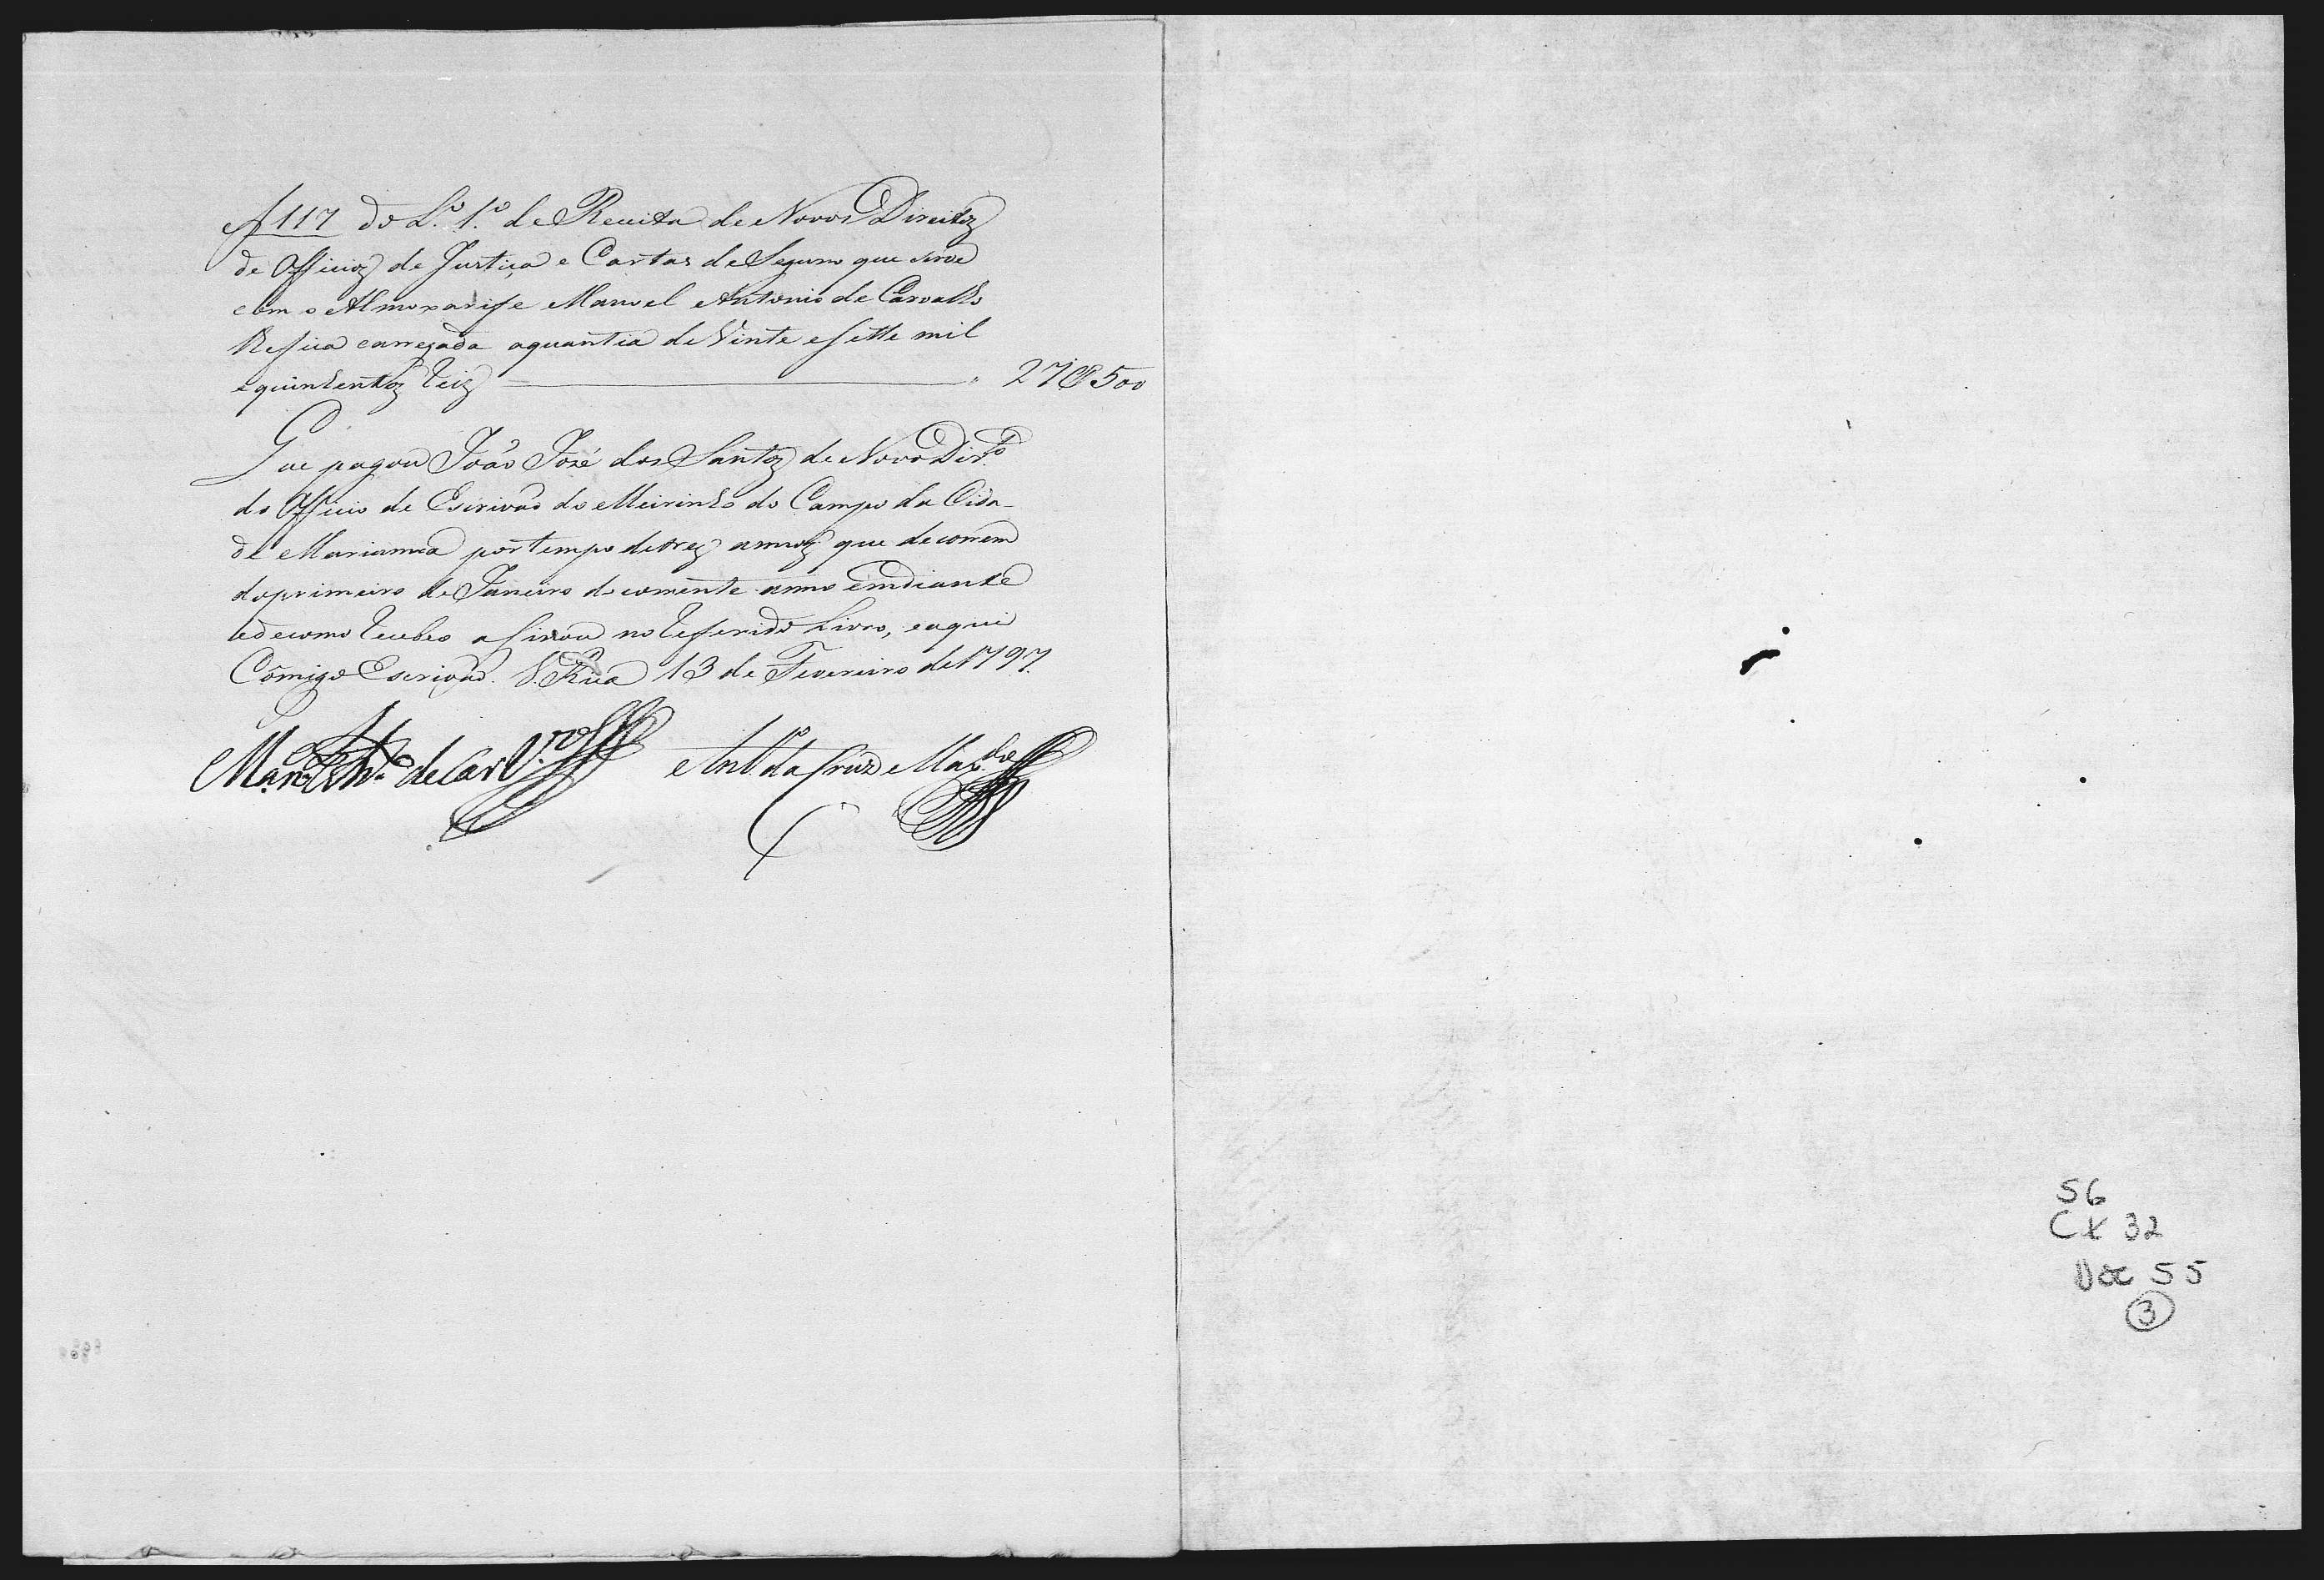 Af 117 do L.º 1.º de Receita de Novos Direitos
de Officios de Justiça e Cartas de Seguro que serve
com o Almoxarife Manoel Antonio de Carvalho
lhe fica carregada a quantia de Vinte e sette mil
e quinhentos reis ——— 27$500
Que pagou João José dos Santos de Novo Dir.to
do Officio de Escrivão do Meirinho do Campo da Cida-
de Marianna por tempo de tres annos que decorrem
do primeiro de Janeiro do corrente anno em diante
e de como recebeo assinou no referido Livro, e aqui
Cõmigo Escrivão. V.ª Rica 13 de Fevereiro de 1797.
Man.el Ant.º de Carv.º Ant.º da Cruz Mac.do
56
CX 32
Doc 55
3